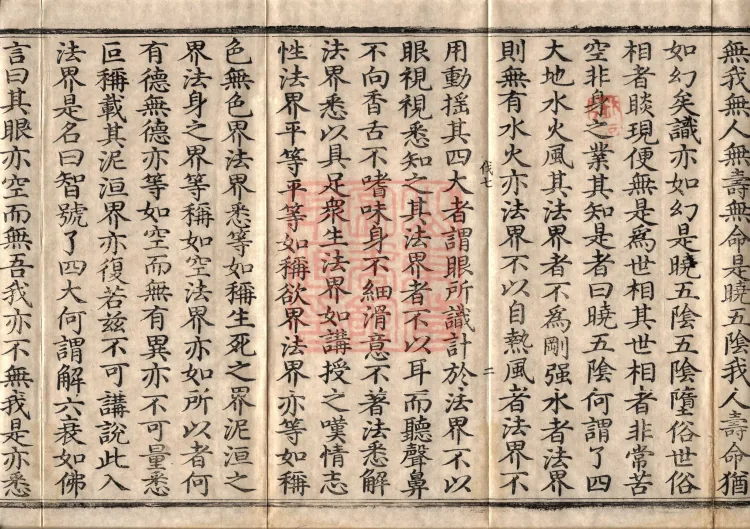 無我無人無壽無命是曉五陰我人壽命猶
如幻矣識亦如幻是曉五陰五陰墮俗世俗
相者睒現便無是為世相其世相者非常苦
空非身之業其知是者曰曉五陰何謂了四
大地水火風其法界者不為剛强水者法界
則無有水火亦法界不以自熱風者法界不
用動搖其四大者謂眼所識計於法界不以
眼視視悉知之其法界者不以耳而聽聲鼻
不向香舌不嗜味身不細滑意不著法悉解
法界悉以具足衆生法界如講授之嘆情志
性法界平等平等如稱欲界法界亦等如稱
色無色界法界悉等如稱生死之界泥洹之
界法身之界等稱如空法界亦如所以者何
有德無德亦等如空而無有異亦不可量悉
叵稱載其泥洹界亦復若兹不可講說此入
法界是名曰智號了四大何謂解六衰如佛
言曰其眼亦空而無吾我亦不無我是亦悉